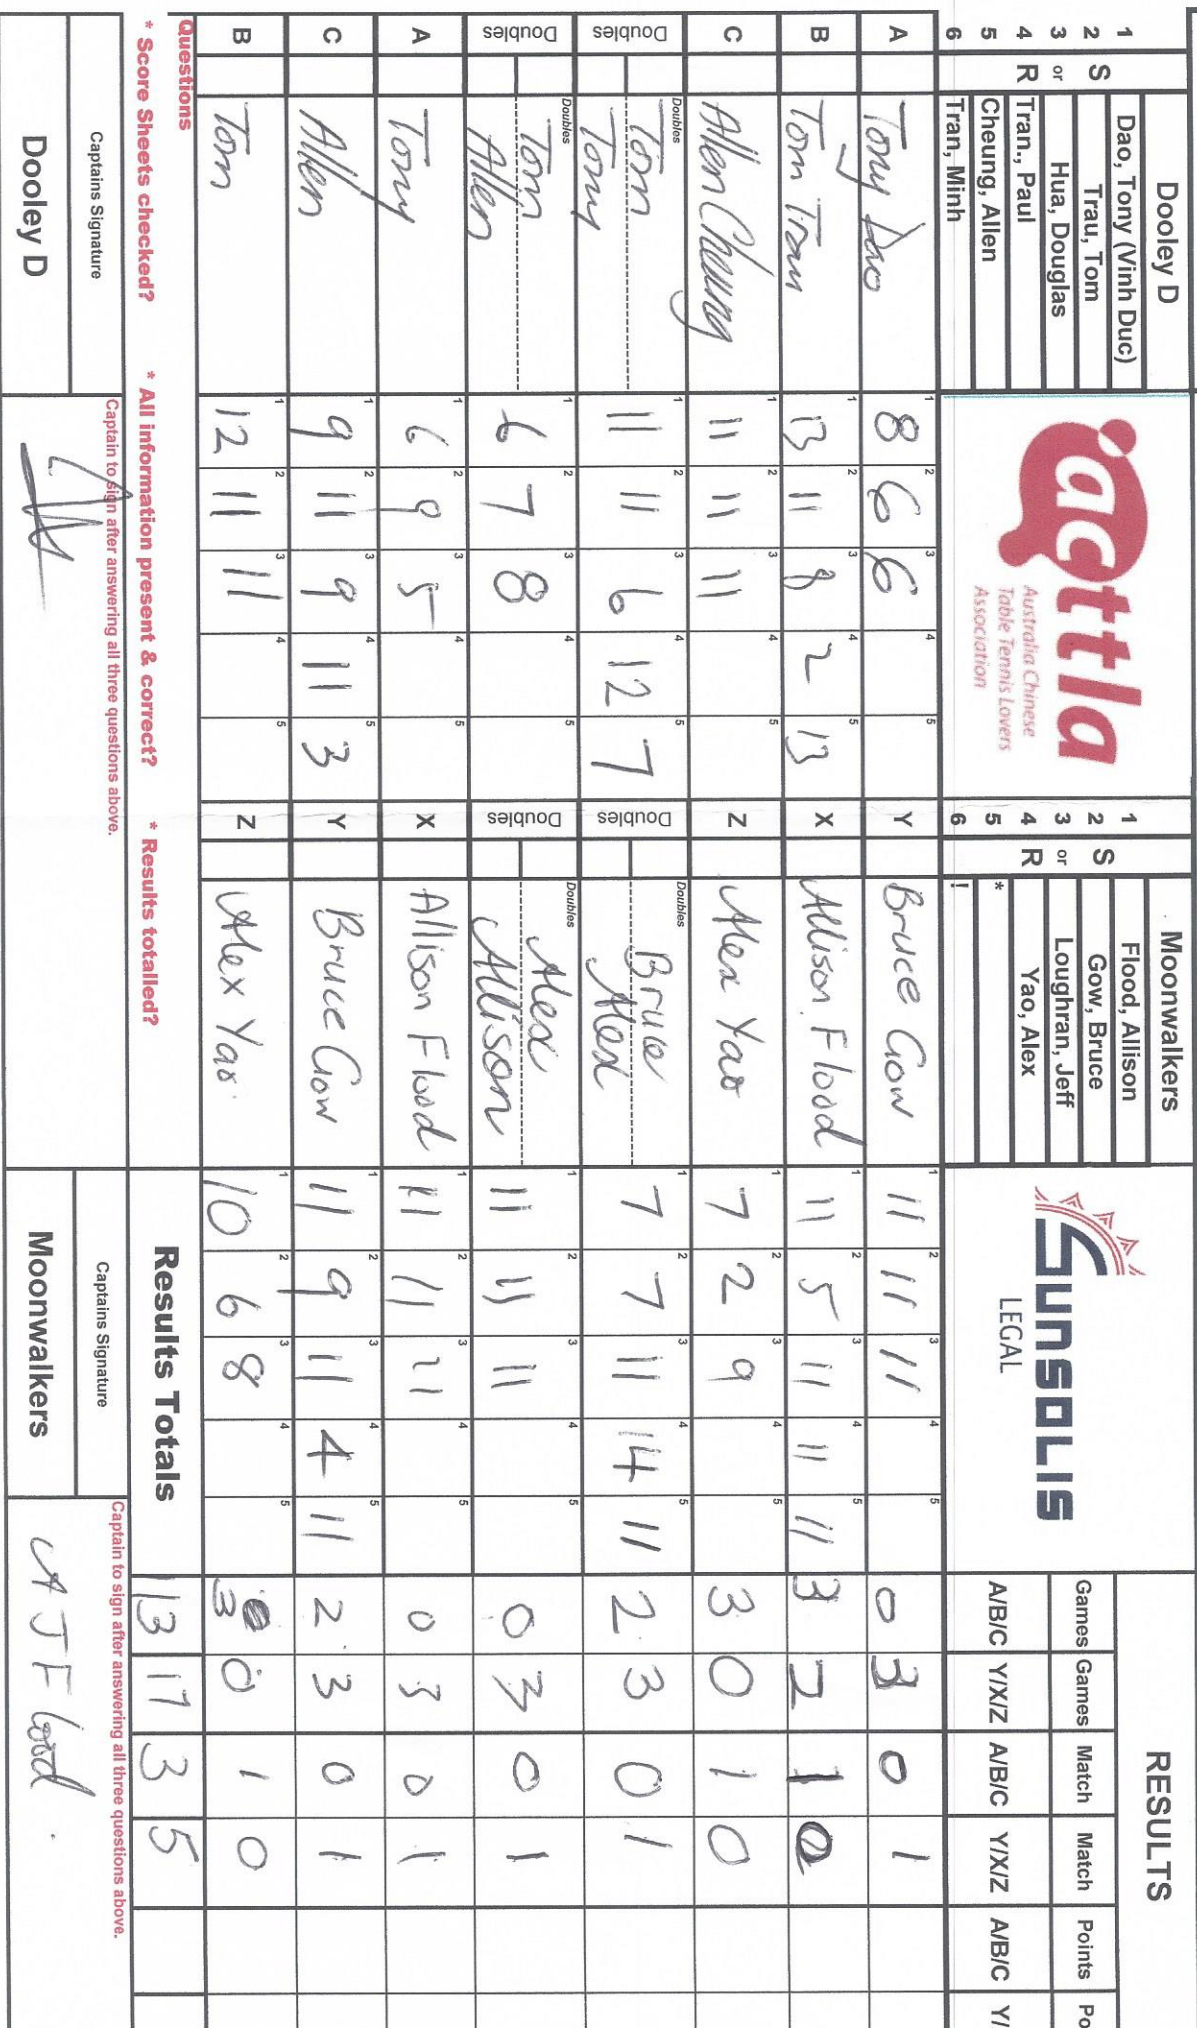 Dooley D
1 Dao, Tony (Vinh Duc)
2 S Trau, Tom
3 or Hua, Douglas
4 R Tran., Paul
5 Cheung, Allen
6 Tran, Minh
acttla
Australia Chinese
Table Tennis Lovers
Association
Moonwalkers
1 Flood, Allison
2 S Gow, Bruce
3 or Loughran, Jeff
4 R Yao, Alex
5 *
6 !
SUNSOLIS
LEGAL
RESULTS
Games Games Match Match Points Po
A/B/C Y/X/Z A/B/C Y/X/Z A/B/C Y/
A Tony Dao 1 8 2 6 3 6 4 5 Y Bruce Gow 1 11 2 11 3 11 4 5 0 3 0 1
B Tom Trau 1 13 2 11 3 8 4 2 5 13 X Allison Flood 1 11 2 5 3 11 4 11 5 11 3 2 1 0
C Allen Cheung 1 11 2 11 3 11 4 5 Z Alex Yao 1 7 2 2 3 9 4 5 3 0 1 0
Doubles Doubles Tom 1 11 2 11 3 6 4 12 5 7 Doubles Doubles Bruce 1 7 2 7 3 11 4 14 5 11 2 3 0 1
Tony Alex
Doubles Doubles Tom 1 6 2 7 3 8 4 5 Doubles Doubles Alex 1 11 2 11 3 11 4 5 0 3 0 1
Allen Allison
A Tony 1 6 2 9 3 5 4 5 X Allison Flood 1 11 2 11 3 11 4 5 0 3 0 1
C Allen 1 9 2 11 3 9 4 11 5 3 Y Bruce Gow 1 11 2 9 3 11 4 4 5 11 2 3 0 1
B Tom 1 12 2 11 3 11 4 5 Z Alex Yao 1 10 2 6 3 8 4 5 3 0 1 0
Questions
* Score Sheets checked? * All information present & correct? * Results totalled?
Results Totals 13 17 3 5
Captains Signature
Captain to sign after answering all three questions above.
Dooley D
Captains Signature
Captain to sign after answering all three questions above.
Moonwalkers
A J Flood